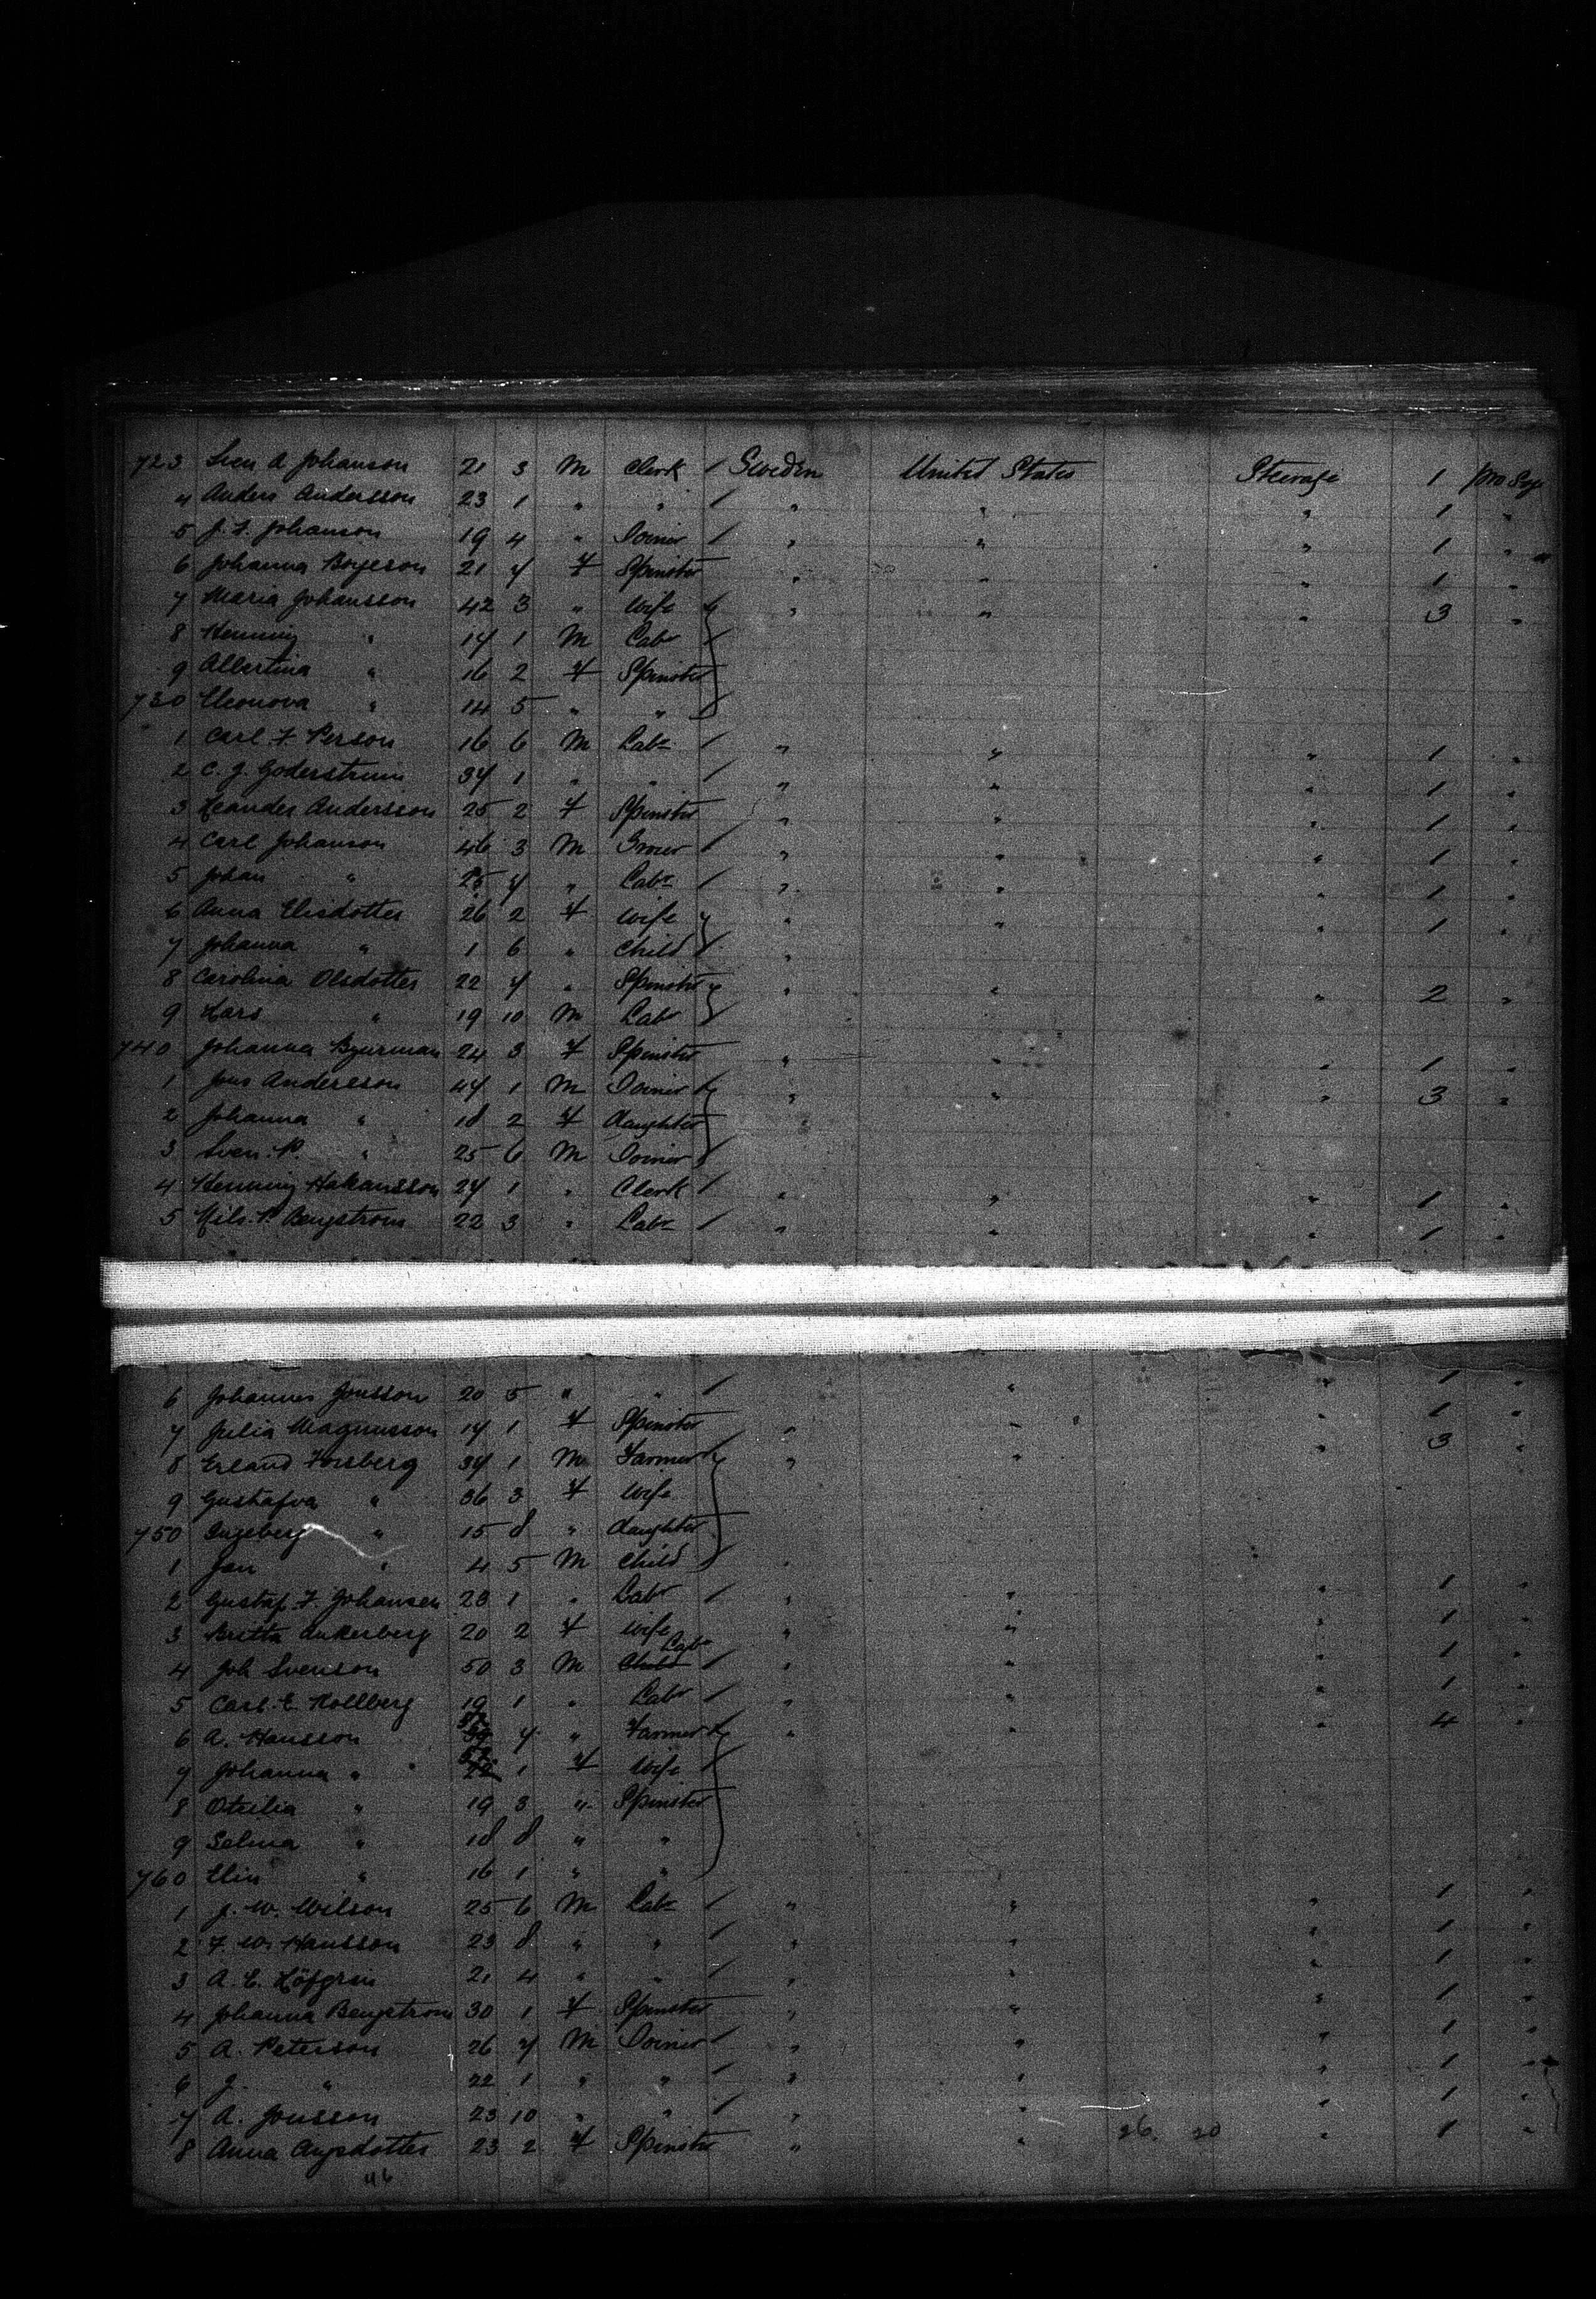 723 Sven A Johanson 21 3 M Clerk / Sweden United States Steerage 1
4 Anders Andersson 23 1 " " / " " " 1 "
5 J. F. Johanson 19 4 " Joiner / " " " 1 "
6 Johanna Boyeson 21 7 F Spinster " " " 1 "
7 Maria Johansson 42 3 " Wife " " " 3 "
8 Henning " 17 1 M Labr
9 Albertina " 16 2 F Spinster
730 Eleonora " 14 5 " "
1 Carl. F. Person 16 6 M Labr / " " " 1 "
2 C. J. 37 1 " " / " " " 1 "
3 Andersson 25 2 F Spinster " " " 1 "
4 Carl Johanson 46 3 M / " " " 1 "
5 Johan " 25 7 " Labr / " " " 1 "
6 Anna Elisdotter 26 2 F Wife " " " 1 "
7 Johanna " 1 6 " Child "
8 Carolina Olsdotter 22 7 " Spinster " " " 2 "
9 Lars " 19 10 M Labr
740 Johanna Bjurman 24 3 F Spinster " " " 1 "
1 Jons Andersson 47 1 M Joiner " " " 3 "
2 Johanna " 18 2 F daughter
3 Sven. P. " 25 6 M Joiner
4 Henning Hakansson 27 1 " Clerk / " " " 1 "
5 Nils. P. Bengstrom 22 3 " Labr / " " " 1 "
6 Johannes Jonsson 20 5 " " / " " 1 "
7 Julia Magnusson 17 1 F Spinster " " " 1 "
8 Erland Forsberg 37 1 M Farmer " " " 3 "
9 Gustafva " 36 3 F Wife
750 Ingeberg " 15 8 " daughter
1 Jan " 4 5 M Child "
2 Gustaf. F. Johansen 28 1 " Labr / " " " 1 "
3 Britta Ankerberg 20 2 F Wife " " " 1 "
4 Joh Svenson 50 3 M Child Labr / " " " 1 "
5 Carl. E. Hollberg 19 1 " Labr / " " " 1 "
6 A. Hansson 7 " Farmer " " " 4 "
7 Johanna " 1 F Wife
8 Otilia " 19 3 " Spinster
9 Selma " 18 8 " "
760 Elin " 16 1 " "
1 J. W. Wilson 25 6 M Labr / " " " 1 "
2 F. W. Hansson 23 8 " " / " " " 1 "
3 A. E. Löfgren 21 4 " " / " " " 1 "
4 Johanna Bengstrom 30 1 F Spinster " " " 1 "
5 A. Peterson 26 7 M Joiner / " " " 1 "
6 J. " 22 1 " " / " " " 1 "
7 A. Jonsson 23 10 " " / " " " 1 "
8 Anna 23 2 F Spinster " " 26. 20 " 1 "